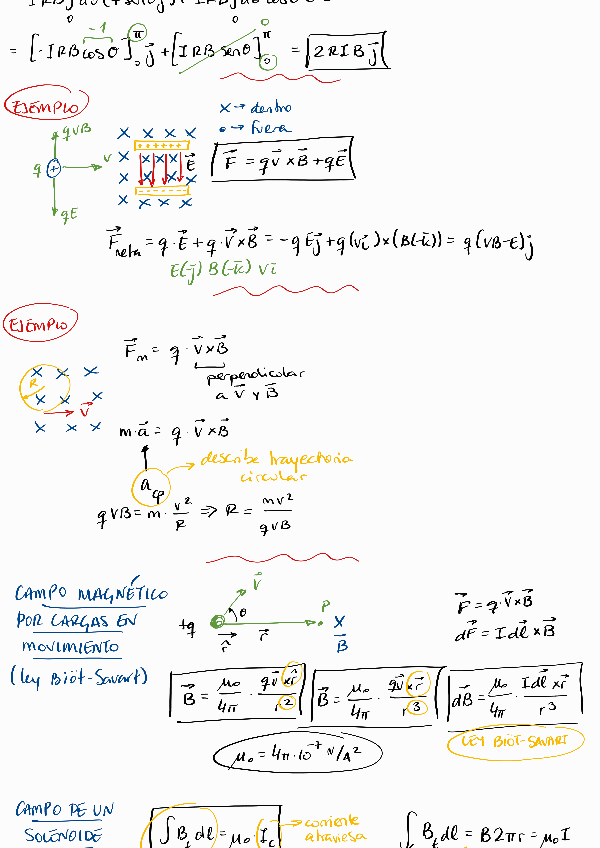 = [-IRB cos θ]₀^π j⃗ + [IRB sen θ]₀^π = 2RIB j⃗
-1
0
EJEMPLO
x → dentro
• → fuera
qvB
q + v
qE
E⃗
F⃗ = qv⃗ x B⃗ + qE⃗
F⃗neta = q · E⃗ + q · v⃗ x B⃗ = -qEj⃗ + q(vi⃗) x (B(-k⃗)) = q(vB-E)j⃗
E(-j⃗) B(-k⃗) vi⃗
EJEMPLO
F⃗m = q · v⃗ x B⃗
perpendicular
a v⃗ y B⃗
R
v⃗
m·a⃗ = q · v⃗ x B⃗
describe trayectoria
circular
qvB = m · v²/R ⇒ R = mv²/qvB
CAMPO MAGNÉTICO
POR CARGAS EN
MOVIMIENTO
(Ley Biöt-Savart)
+q v⃗ θ r̂ r⃗ P x B⃗
F⃗ = q · v⃗ x B⃗
dF⃗ = I dl⃗ x B⃗
B⃗ = μ₀/4π · qv⃗ x r̂/r²
B⃗ = μ₀/4π · qv⃗ x r⃗/r³
dB⃗ = μ₀/4π · I dl⃗ x r⃗/r³
LEY BIÖT-SAVART
μ₀ = 4π·10⁻⁷ N/A²
CAMPO DE UN
SOLENOIDE
∫ Bt dl = μ₀ · Ic → corriente
atraviesa
∫c Bt dl = B2πr = μ₀ I